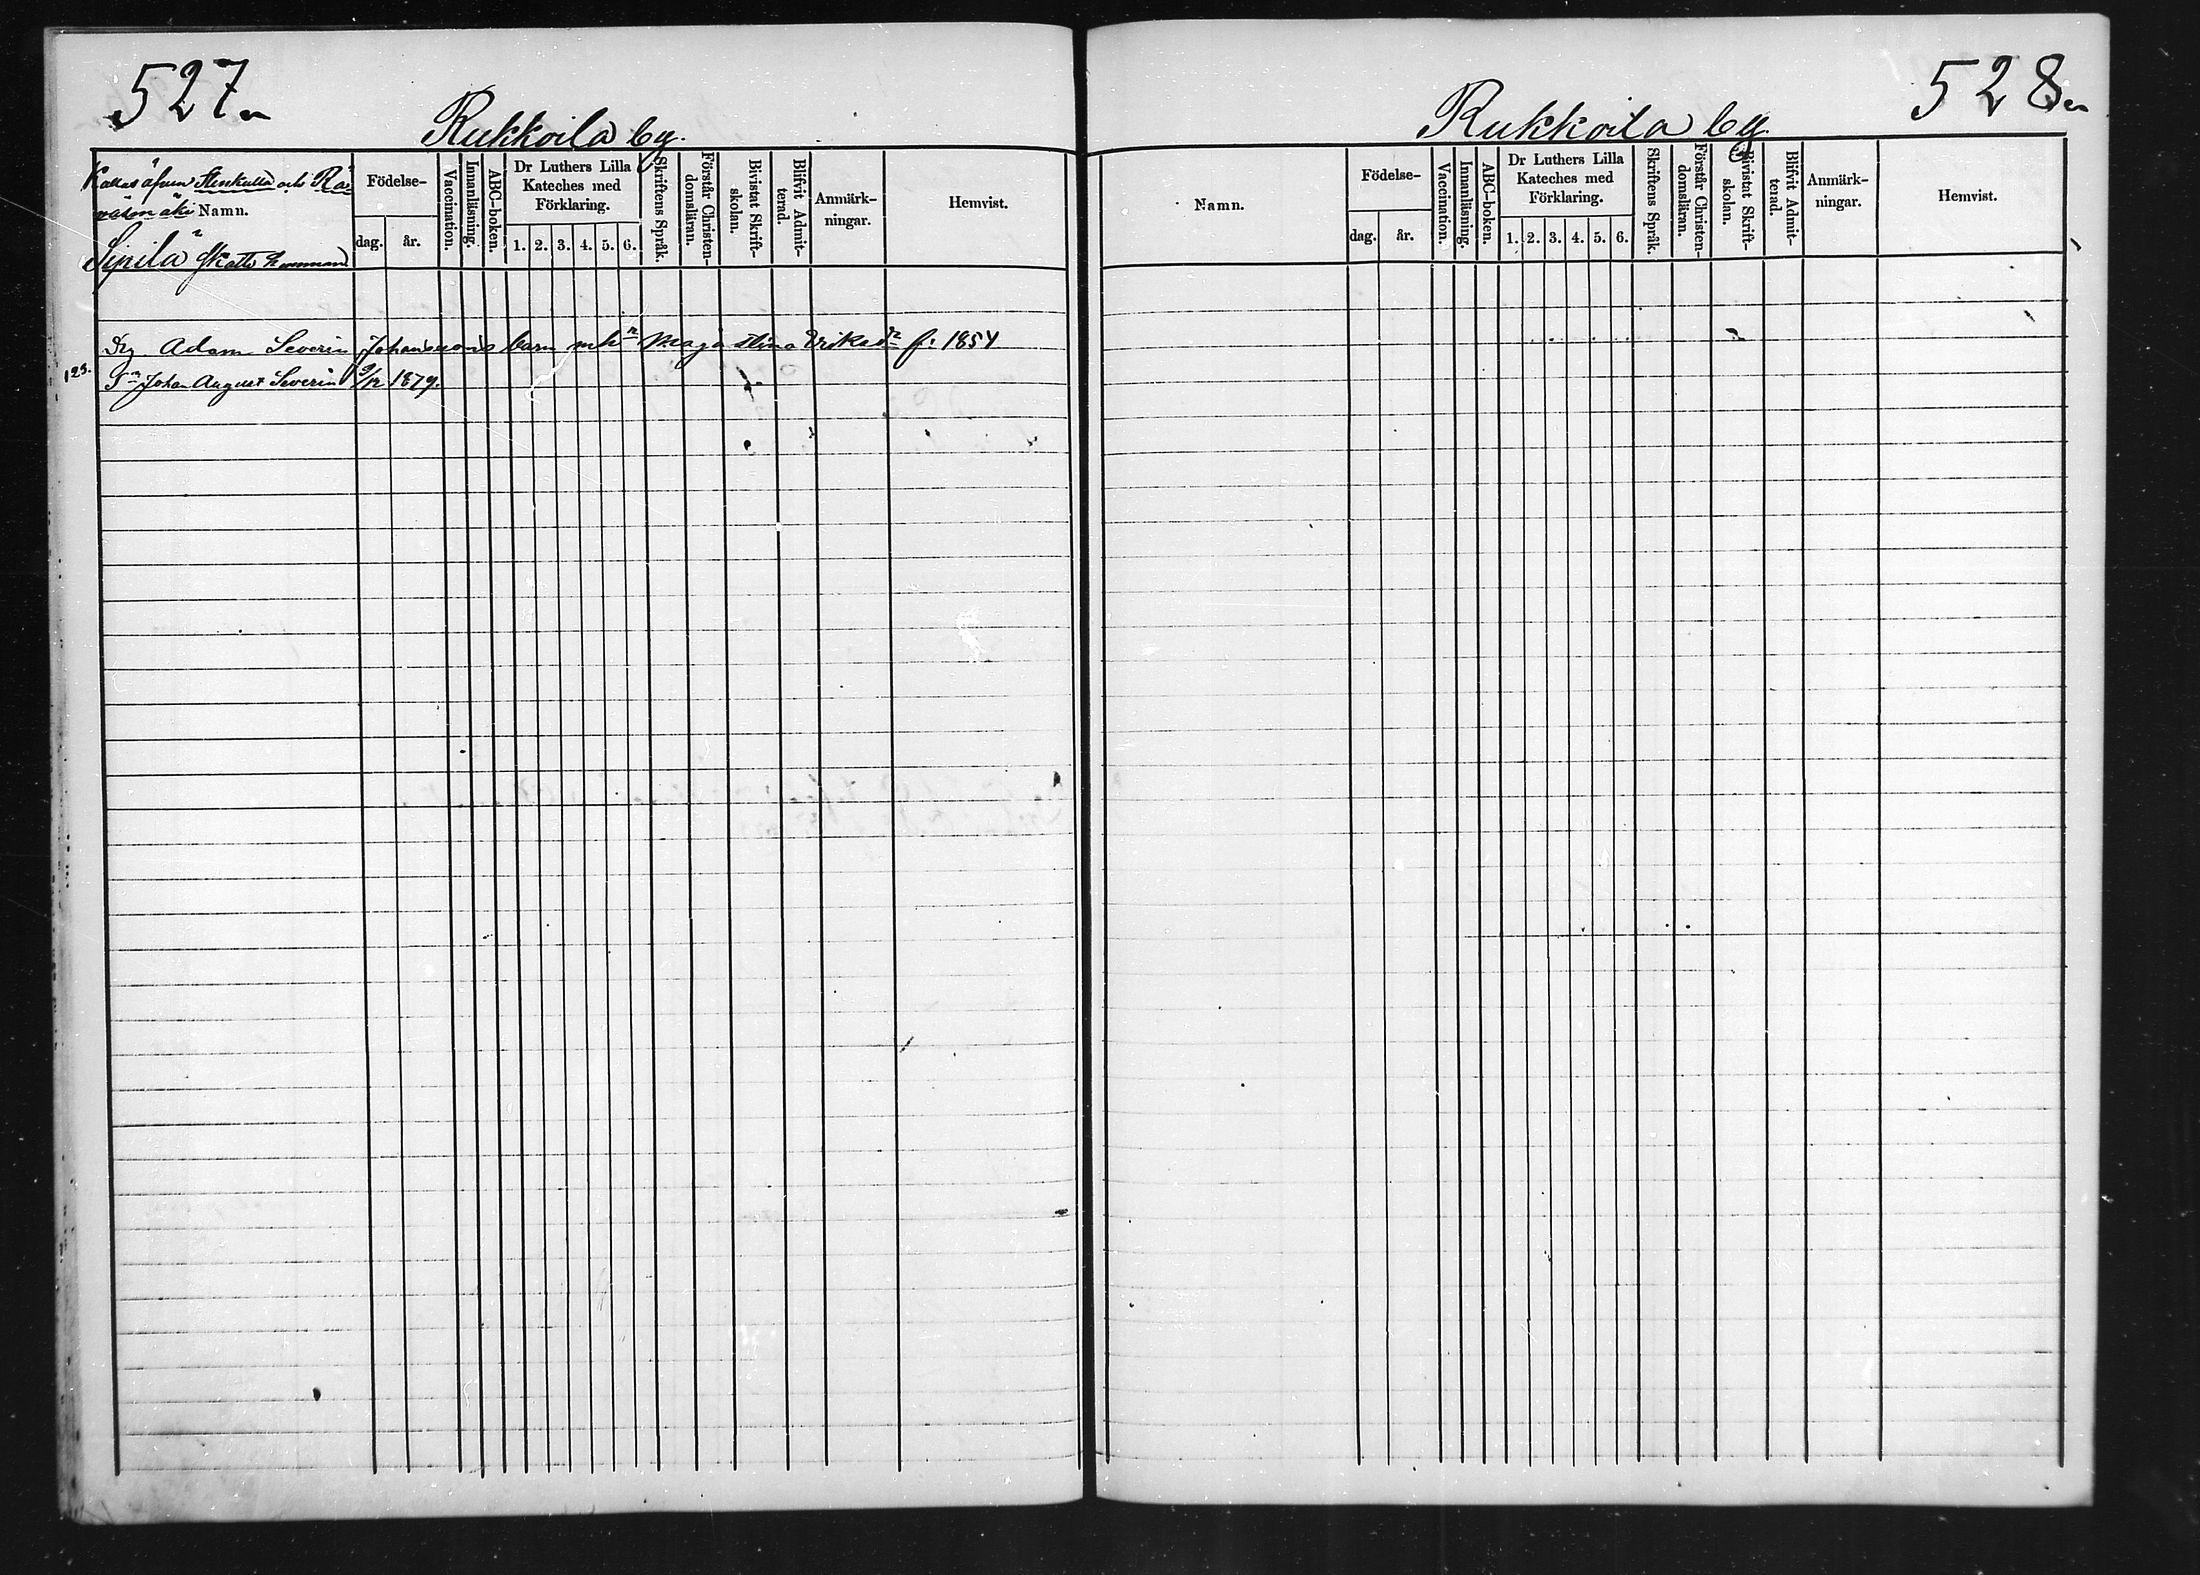 527.
Rukkoila by.
Kallas äfven Stenkulla och Rä-
vätsmäki Namn.
Sipilä Skatte hemman
Födelse-
dag. år.
Vaccination.
Innanläsning.
ABC-boken.
Dr Luthers Lilla
Kateches med
Förklaring.
1. 2. 3. 4. 5. 6.
Skriftens Språk.
Förstår Christen-
domsläran.
Bivistat Skrift-
skolan.
Blifvit Admit-
terad.
Anmärk-
ningar.
Hemvist.
Drg Adam Severin Johanssons barn m hn Maja Stina Eriksdr f. 1854
123. Sn Johan August Severin 9/12 1879.
528.
Rukkoila by.
Namn.
Födelse-
dag. år.
Vaccination.
Innanläsning.
ABC-boken.
Dr Luthers Lilla
Kateches med
Förklaring.
1. 2. 3. 4. 5. 6.
Skriftens Språk.
Förstår Christen-
domsläran.
Bivistat Skrift-
skolan.
Blifvit Admit-
terad.
Anmärk-
ningar.
Hemvist.